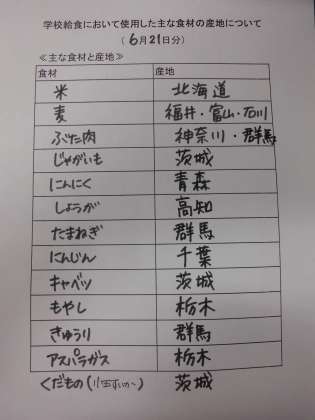 学校給食において使用した主な食材の産地について
(6月21日分)
≪主な食材と産地≫
食材 産地
米 北海道
麦 福井・富山・石川
ぶた肉 神奈川・群馬
じゃがいも 茨城
にんにく 青森
しょうが 高知
たまねぎ 群馬
にんじん 千葉
キャベツ 茨城
もやし 栃木
きゅうり 群馬
アスパラガス 栃木
くだもの(小玉すいか) 茨城